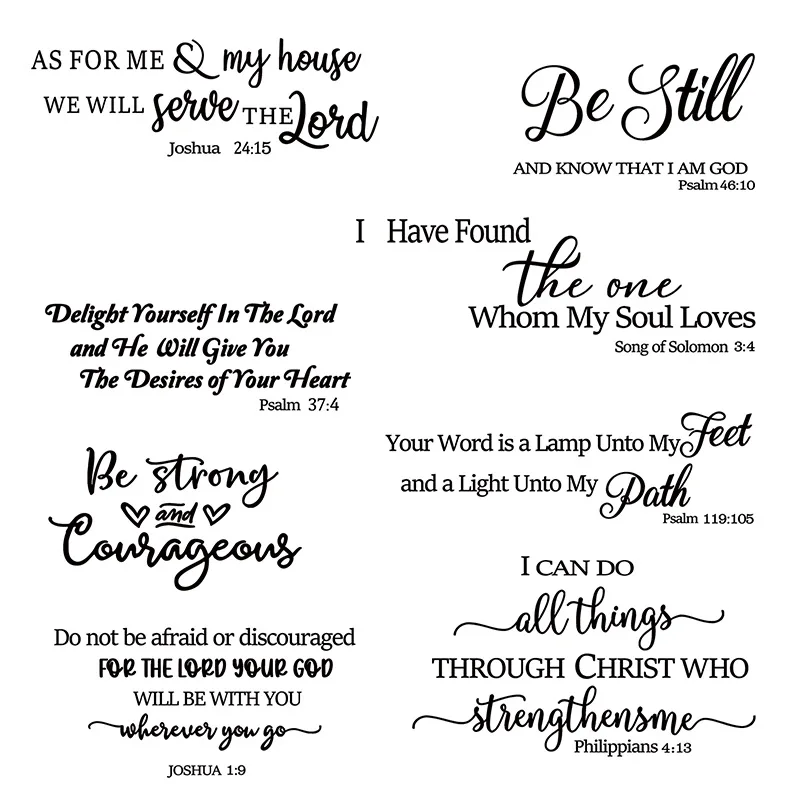 AS FOR ME & my house
WE WILL serve THE Lord
Joshua 24:15
Be Still
AND KNOW THAT I AM GOD
Psalm 46:10
I Have Found
the one
Whom My Soul Loves
Song of Solomon 3:4
Delight Yourself In The Lord
and He Will Give You
The Desires of Your Heart
Psalm 37:4
Your Word is a Lamp Unto My Feet
and a Light Unto My Path
Psalm 119:105
Be strong
and
Courageous
Do not be afraid or discouraged
FOR THE LORD YOUR GOD
WILL BE WITH YOU
wherever you go
JOSHUA 1:9
I CAN DO
all things
THROUGH CHRIST WHO
strengthensme
Philippians 4:13